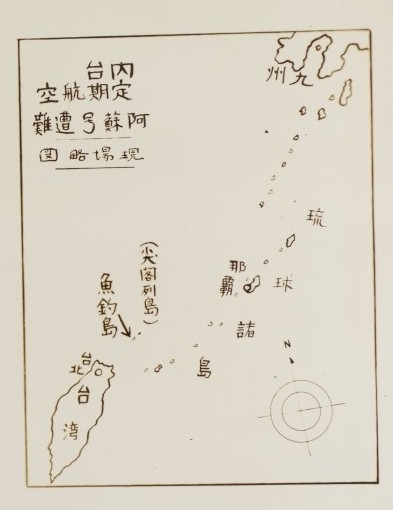 内台
定期航空
阿蘇号遭難
現場略図
九州
琉球諸島
那覇
(尖閣列島)
魚釣島
N
台北
台湾